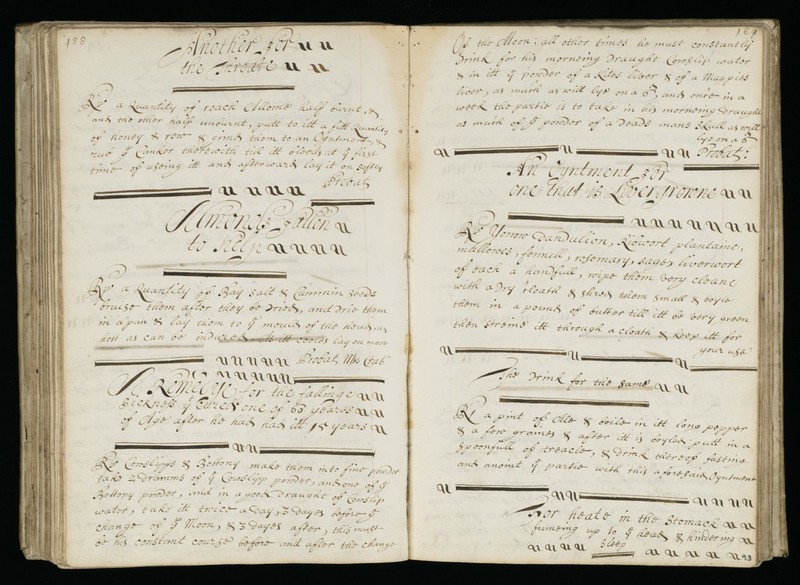 188
Another for
the Throate
Rx a Quantity of roach Allome half burnt, &
and the other half unburnt, putt to itt a like quantity
of honey & & grind them to an Oyntment, &
rub ye Canker therewith till itt bleeds at ye first
time of useing itt and afterward lay it on softly
Probat
Almonds fallen
to help
Rx a Quantity of Bay salt & Cummin seeds
bruise them after they be dried, and drie them
in a pan & lay them to ye mould of the head, as
hott as can be indured, as itt cooles lay on more
Probat Mrs Crab
A Remedye for the fallinge
sickness yt cured one of 60 yeares
of Age after he had had itt yeares
Rx Conslipps & Bettony make them into fine powder
take 2 dramms of ye Couslipp powder, and one of ye
Bettony powder, and in a good draught of Conslip
water, take itt twice a day, 3 dayes before ye
change of ye Moon, & 3 dayes after, this must
be his constant course before and after the change
189
Of the Moon; all other times he must constantly
Drink for his morneing Draught Conslip water
& in itt ye powder of a Kites liver & of a Magpies
liver, as much as will lye on a 6d, and once in a
week the partie is to take in his morneing Draught
as much of ye powder of a Deads mans Skull as will
lye on a 6d
Probat:
An Oyntment for
one that is Livergrowne
Rx Yarrow Dandulion, Ribwort plantaine,
mallowes, fennell, rosemary, sage, liverwort
of each a handfull, wipe them very cleane
with a Dry cloath & shred them small & boyle
them in a pound of butter till itt be very green
then streine itt through a cloath & keep itt for
your use
The Drink for the same
Rx a pint of Ale & boile in itt long pepper
& a few graines & after itt is boyled putt in a
spoonfull of treacle, & drink thereof fasting
and anoint ye partie with this aforesaid Oyntment
For heate in the Stomack
fumeing up to ye head & hindering
sleep